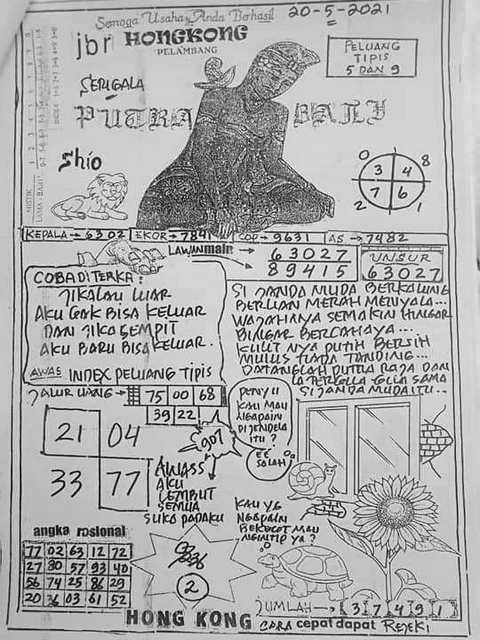 Semoga Usaha Anda Berhasil
20-5-2021
jbr HONGKONG
PELAMBANG
PELUANG
TIPIS
5 DAN 9
SERIGALA
PUTRA BALI
Shio
0 8
3 4
7 6
2 1
KEPALA → 6302 EKOR → 7841 COP → 9631 AS → 7482
LAWAN main
63027
89415
UNSUR
63027
COBA DITERKA:
JIKALAU LUAR
AKU GAK BISA KELUAR
DAN JIKA SEMPIT
AKU BARU BISA KELUAR.
AWAS INDEX PELUANG TIPIS
SI JANDA MUDA BERKALUNG
BERLIAN MERAH MENYALA...
WAJAHNYA SEMAKIN HINGAR
BINGAR BERCAHAYA...
KULIT NYA PUTIH BERSIH
MULUS TIADA TANDING...
DATANGLAH PUTRA RAJA DAN
IA TERGILA GILA SAMA
SI JANDA MUDA ITU...
JALUR UANG → 75 00 68
39 22
21 04
33 77
907
AWASS
AKU
LEMBUT
SEMUA
SUKA PADAKU
KAU MAU
NGAPAIN
DI JENDELA
ITU?
EE
SALAH
KAU YG
NGAPAIN
MAU
NGINTIP YA?
angka rasional
77 02 63 12 72
27 80 57 93 40
56 74 25 86 29
20 36 03 61 52
2
JUMLAH → 3 7 4 9 1
HONG KONG CARA cepat dapat REJEKI